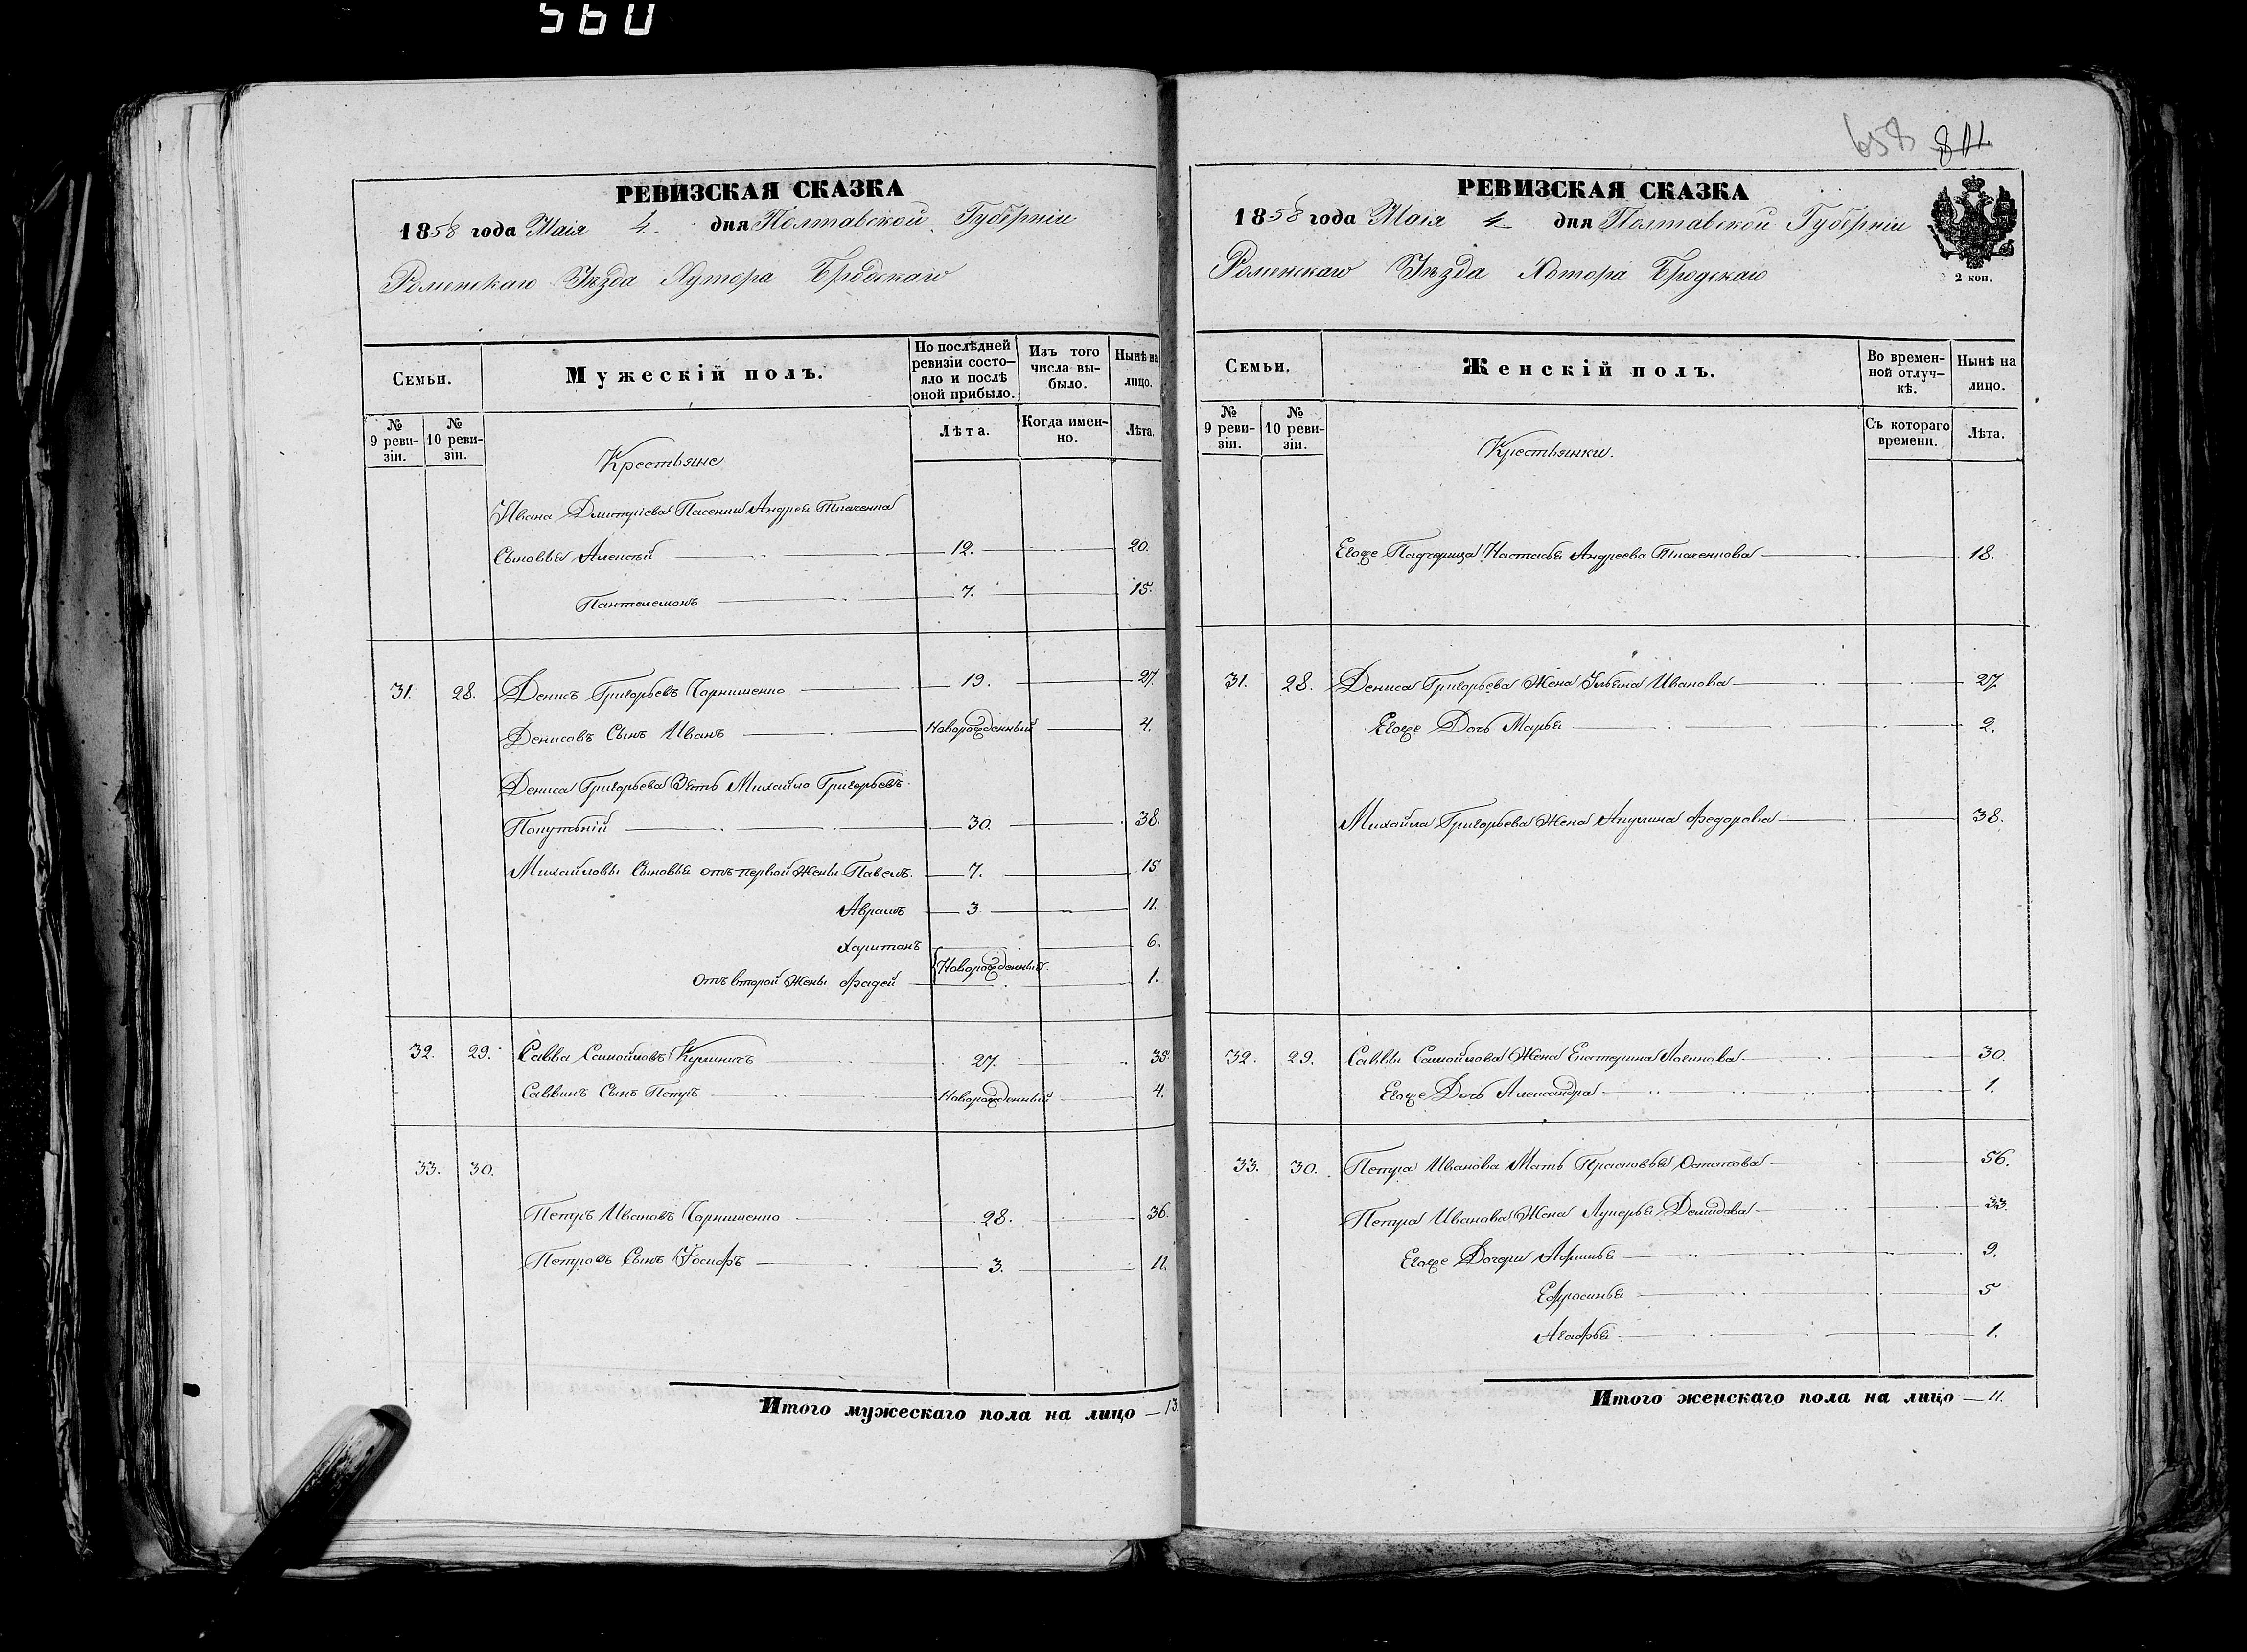 560
658 811
РЕВИЗСКАЯ СКАЗКА
1858 года Маія 4 дня Полтавской Губерніи
Роменскаго Уѣзда Хутора Бродскаго
Семьи.
Мужескій полъ.
По послѣдней ревизіи состояло и послѣ оной прибыло.
Изъ того числа выбыло.
Нынѣ на лицо.
№ 9 ревизіи.
№ 10 ревизіи.
Лѣта.
Когда именно.
Лѣта.
Крестьяне
Ивана Дмитріева Пасенка Андрея Ткаченка
Сыновья Алексѣй 12. 20.
Пантелемонъ 7. 15.
31. 28. Денисъ Григорьевъ Чорнишенко 19. 27
Денисовъ Сынъ Иванъ Новорожденный 4.
Дениса Григорьева Зять Михайло Григорьевъ
Покутній 30. 38.
Михайловы Сыновья отъ первой Жены Павелъ. 7. 15
Аврамъ 3 11.
Харитонъ 6.
Новорожденный.
Отъ второй Жены Фадей 1.
32. 29. Савва Самойловъ Кулиничъ 27. 35
Саввинъ Сынъ Петръ Новорожденный 4.
33. 30.
Петръ Ивановъ Чорнишенко 28. 36.
Петровъ Сынъ Іосифъ 3. 11.
Итого мужескаго пола на лицо — 13.
РЕВИЗСКАЯ СКАЗКА
1858 года Маія 4 дня Полтавской Губерніи
Роменскаго Уѣзда Хотора Бродскаго
2 коп.
Семьи.
Женскій полъ.
Во временной отлучкѣ.
Нынѣ на лицо.
№ 9 ревизіи.
№ 10 ревизіи.
Съ котораго времени.
Лѣта.
Крестьянки.
Егоже Падчерица Настасья Андреева Ткаченкова 18.
31. 28. Дениса Григорьева Жена Ульяна Иванова 27
Егоже Дочь Марья 2.
Михайла Григорьева Жена Акулина Федорова 38.
32. 29. Саввы Самойлова Жена Екатерина Логинова 30.
Егоже Дочь Александра 1.
33. 30. Петра Иванова Мать Прасковья Остапова 56.
Петра Иванова Жена Лукерья Демидова 33.
Егоже Дочери Афимья 9.
Ефросинья 5
Агафья 1.
Итого женскаго пола на лицо — 11.